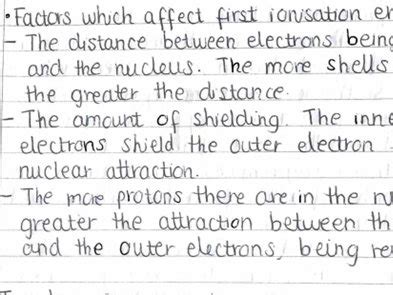 • Factors which affect first ionisation
– The distance between electrons
and the nucleus. The more shells
the greater the distance.
– The amount of shielding. The
electrons shield the outer electron
nuclear attraction.
– The more protons there are in the
greater the attraction between
and the outer electrons, being